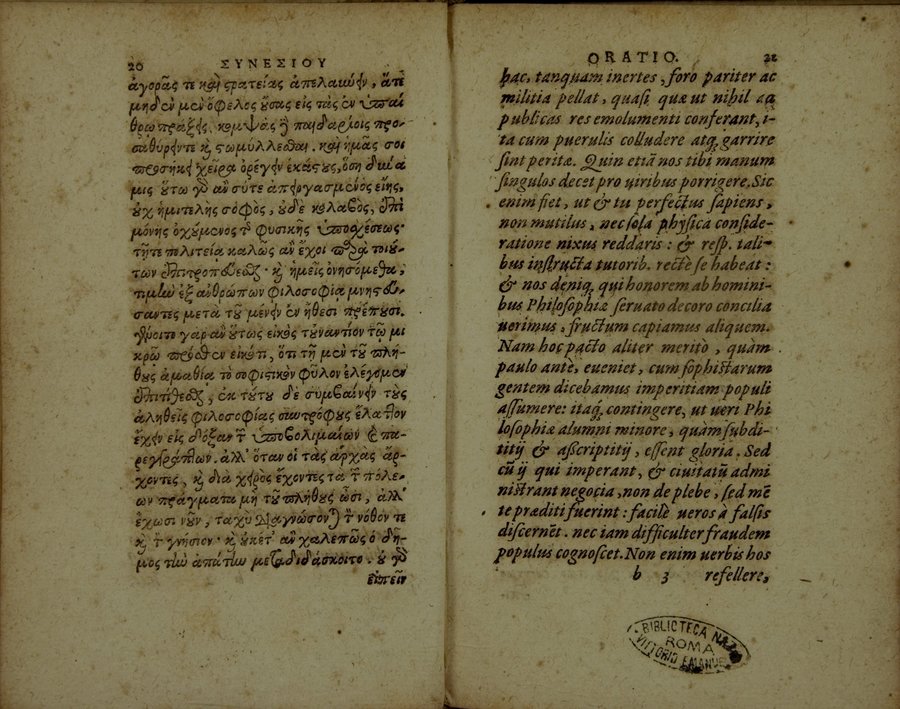 20 ΣΥΝΕΣΙΟΥ
ἀγορᾶς τε καὶ στρατείας ἀπελαύνειν, ἅτε
μηδὲν μὲν ὄφελος οὔσας εἰς τὰς ἐν ὑπαί
θρῳ πράξεις, κομψὰς ἢ παιδαρίοις προσ-
αθύρειν τε καὶ στωμύλλεσθαι. καὶ ἡμᾶς σοι
προσήκει χεῖρα ὀρέγειν ἑκάστους, ὅση δύνα
μις οὕτω γὰρ ἂν σύ τε ἀπειργασμένος εἴης,
οὐχ ἡμιτελὴς σοφὸς, οὐδὲ κολοβὸς, ἐπὶ
μόνης ὀχούμενος τῆς φυσικῆς ὑποσχέσεως·
τῇ τε πολιτείᾳ καλῶς ἂν ἔχοι παρὰ τοιού-
των ἐπιτροπεύεσθαι· καὶ ἡμεῖς ὀνησόμεθα,
τιμὴν ἐξ ἀνθρώπων φιλοσοφίᾳ μνηστεύ-
σαντες μετὰ τοῦ μένειν ἐν ἤθεσι πρέπουσι.
γένοιτο γὰρ ἂν οὕτως εἰκὸς τοὐναντίον τῷ μι
κρῷ πρόσθεν εἰκότι, ὅτι τῇ μὲν τοῦ πλή-
θους ἀμαθίᾳ τὸ σοφιστικὸν φῦλον ἐλέγομεν
ἐπιτίθεσθαι, ἐκ τούτου δὲ συμβαίνειν τοὺς
ἀληθεῖς φιλοσοφίας συντρόφους ἔλαττον
ἔχειν εἰς δόξαν τῶν ὑποβολιμαίων καὶ πα-
ρεγγράπτων. ἀλλ' ὅταν οἱ τὰς ἀρχὰς ἄρ-
χοντες, καὶ διὰ χειρὸς ἔχοντες τὰ τῶν πόλε-
ων πράγματα μὴ τοῦ πλήθους ὦσι, ἀλλ'
ἔχωσι νοῦν, ταχὺ διαγνώσονται τὸ νόθον τε
καὶ τὸ γνήσιον· καὶ οὐκέτ' ἂν χαλεπῶς ὁ δῆ-
μος τὴν ἀπάτην μεταδιδάσκοιτο. οὐ γὰρ
εἰπεῖν
ORATIO. 21
hac, tanquam inertes, foro pariter ac
militia pellat, quasi quæ ut nihil ad
publicas res emolumenti conferant, i-
ta cum puerulis colludere atq; garrire
sint peritæ. Quin etiā nos tibi manum
singulos decet pro uiribus porrigere. Sic
enim fiet, ut & tu perfectus sapiens,
non mutilus, nec sola physica conside-
ratione nixus reddaris: & resp. tali-
bus instructa tutorib. rectè se habeat:
& nos deniq; qui honorem ab homini-
bus Philosophiæ seruato decoro concilia
uerimus, fructum capiamus aliquem.
Nam hoc pacto aliter meritò, quàm
paulo ante, eueniet, cum sophistarum
gentem dicebamus imperitiam populi
assumere: itaq; contingere, ut ueri Phi
losophiæ alumni minore, quàm subdi-
titij & asscriptitij, essent gloria. Sed
cū ij qui imperant, & ciuitatū admi
nistrant negocia, non de plebe, sed mē
te præditi fuerint: facilè ueros à falsis
discernēt. nec iam difficulter fraudem
populus cognoscet. Non enim uerbis hos
b 3 refellere,
BIBLIOTECA NAZ
ROMA
VITTORIO EMANUE